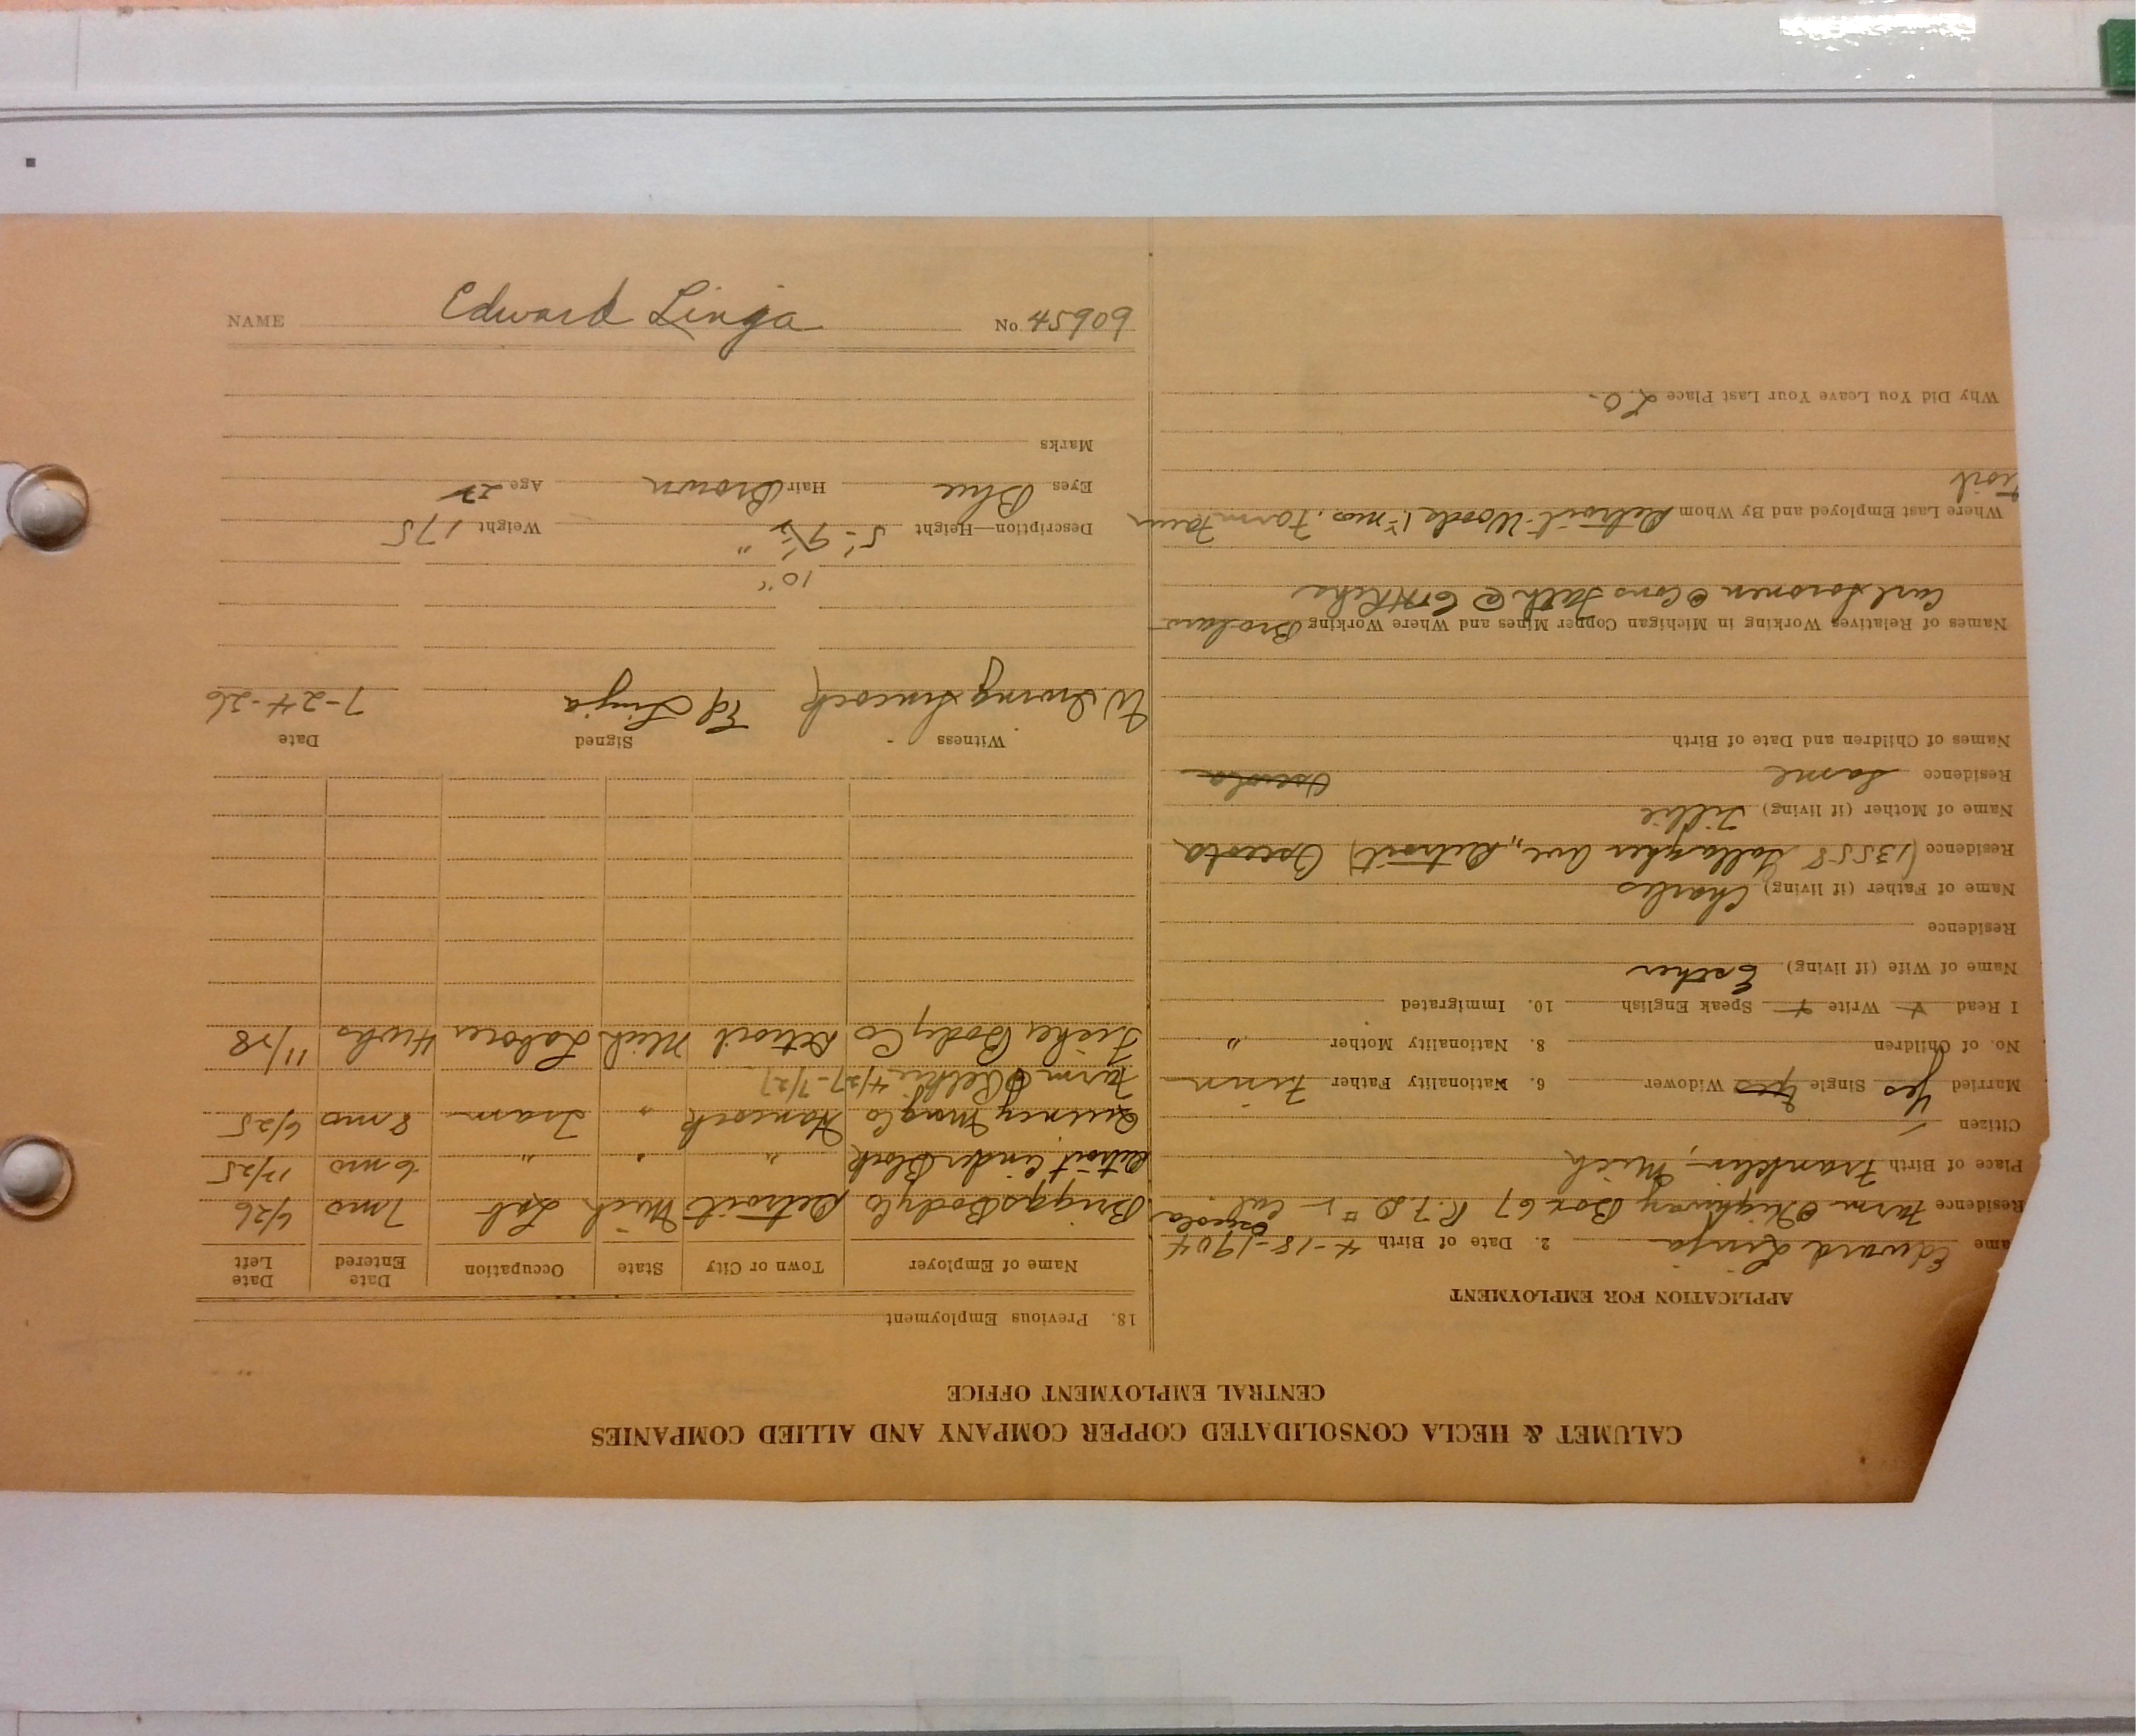 NAME Edward Linja No. 45909
CALUMET & HECLA CONSOLIDATED COPPER COMPANY AND ALLIED COMPANIES
CENTRAL EMPLOYMENT OFFICE
APPLICATION FOR EMPLOYMENT
ame Edward Linja 2. Date of Birth 4-18-1904
Osceola
Residence Farm Highway Box 67 R.F.D. #1 Cal.
Place of Birth Franklin, Mich
Citizen
Married Yes Single Yes Widower 6. Nationality Father Finn
No. of Children 8. Nationality Mother "
I Read Write Speak English 10. Immigrated
Name of Wife (if living) Esther
Residence
Name of Father (if living) Charles
Residence (13558 Gallagher Ave., Detroit) Osceola
Name of Mother (if living) Tillie
Residence Same Osceola
Names of Children and Date of Birth
Names of Relatives Working in Michigan Copper Mines and Where Working
Carl Soronen
Where Last Employed and By Whom Detroit Woods mos. Farm
Why Did You Leave Your Last Place L.O.
18. Previous Employment
Name of Employer Town or City State Occupation Date Entered Date Left
Briggs Body Co Detroit Mich Lab 7 mo 6/26
Detroit Cinder Block " " " 6 mo 12/25
Quincy Mng Co Hancock " Tram 8 mo 6/25
Farm 4/27-7/27
Fisher Body Co Detroit Mich Laborer 4 wks 11/28
Witness Signed Date
W. Irving Ed Linja 7-24-26
10"
Description—Height 5'-9 1/2" Weight 175
Eyes Blue Hair Brown Age 22
Marks